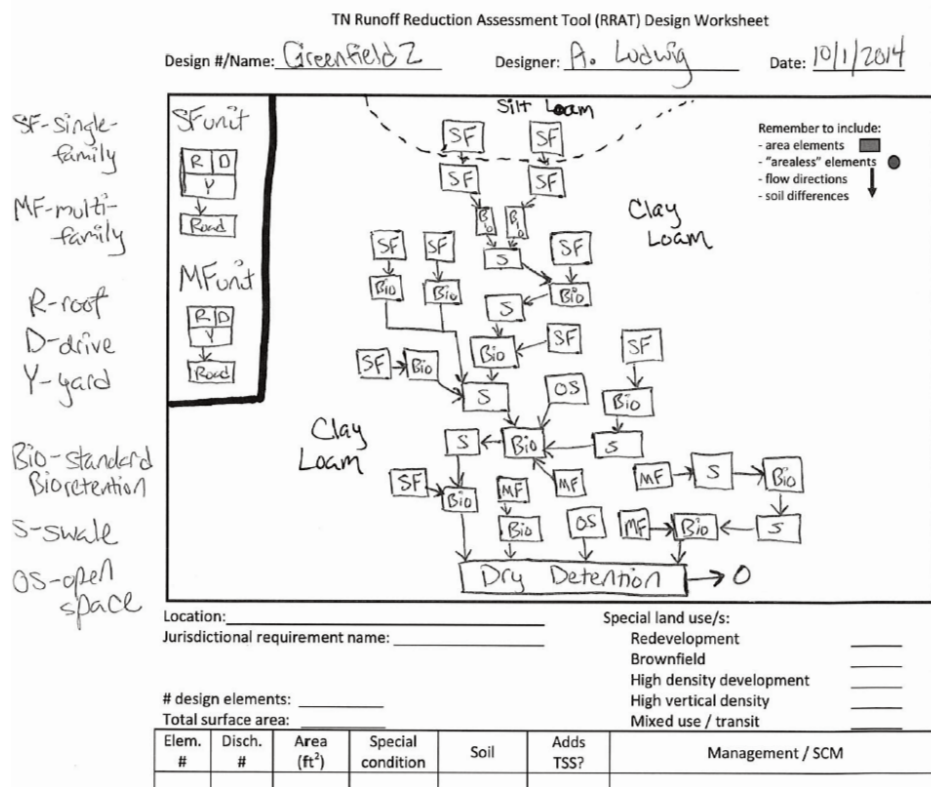 TN Runoff Reduction Assessment Tool (RRAT) Design Worksheet
Design #/Name: Greenfield 2 Designer: A. Ludwig Date: 10/1/2014
SF-single-
family
MF-multi-
family
R-roof
D-drive
Y-yard
Bio-standard
Bioretention
S-swale
OS-open
space
SF unit
R D
Y
Road
MF unit
R D
Y
Road
Silt Loam
Remember to include:
- area elements
- "arealess" elements
- flow directions
- soil differences
Clay
Loam
SF SF
SF SF
Bio Bio
SF SF S SF
Bio Bio S Bio
Bio SF SF
SF Bio S OS Bio
Clay
Loam
S Bio S
SF Bio MF MF MF S Bio
Bio OS MF Bio S
Dry Detention O
Location:
Jurisdictional requirement name:
# design elements:
Total surface area:
Special land use/s:
Redevelopment
Brownfield
High density development
High vertical density
Mixed use / transit
Elem. # Disch. # Area (ft²) Special condition Soil Adds TSS? Management / SCM